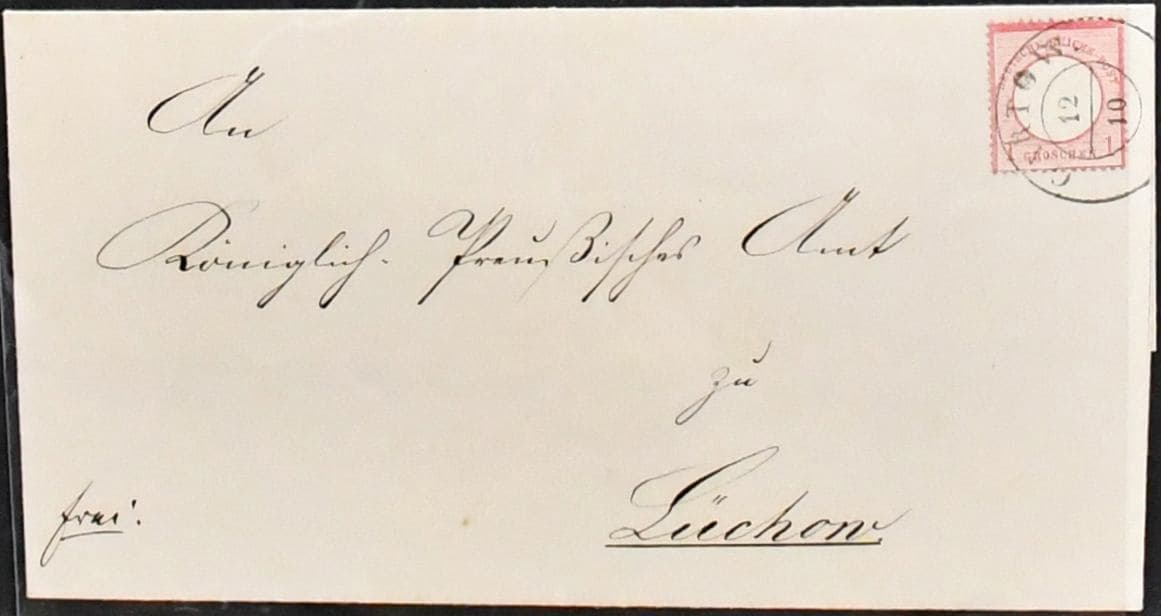 An
Königlich. Preußisches Amt
zu
Lüchow.
frei.
1 GROSCHEN 1
12
10